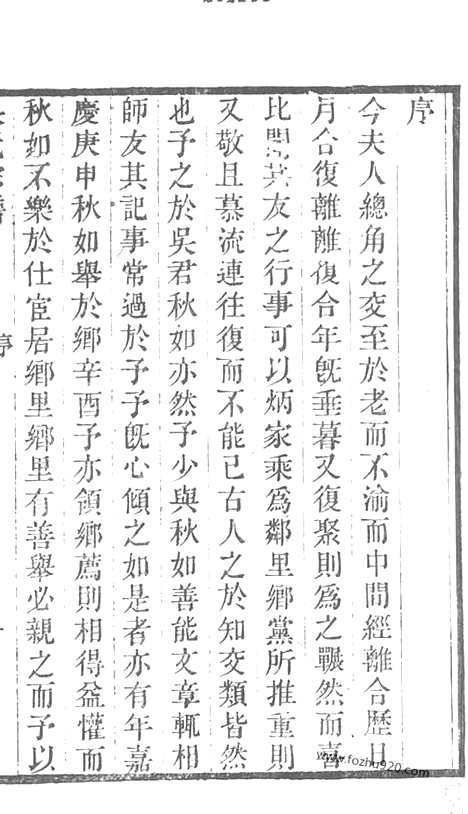 序
今夫人總角之交至於老而不渝而中間經離合歷日
月合復離離復合年旣垂暮又復聚則爲之囅然而喜
比聞其友之行事可以炳家乘爲鄰里鄉黨所推重則
又敬且慕流連往復而不能已古人之於知交類皆然
也予之於吳君秋如亦然予少與秋如善能文章輒相
師友其記事常過於予予旣心傾之如是者亦有年嘉
慶庚申秋如舉於鄉辛酉予亦領鄉薦則相得益懽而
秋如不樂於仕宦居鄉里鄉里有善舉必親之而予以
序
www.fozhu920.com